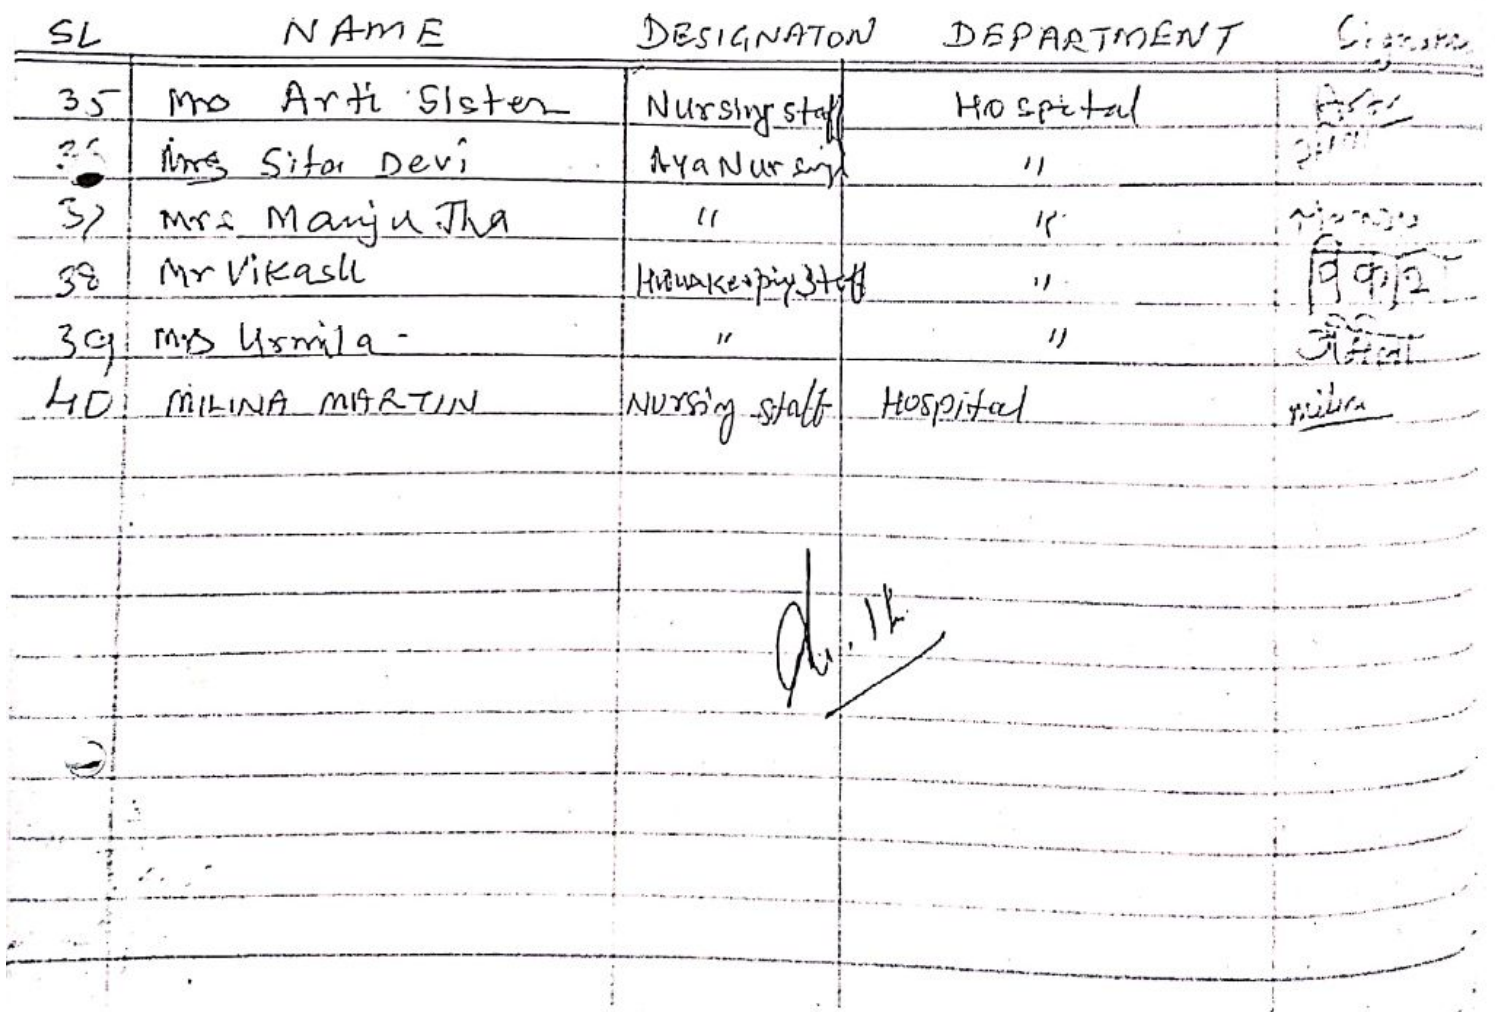 SL NAME DESIGNATON DEPARTMENT Signature
35 Mrs Arti Sister Nursing staff Hospital Arti
36 Mrs Sita Devi Aya Nursing "
37 Mrs Manju Jha " "
38 Mr Vikash Housekeeping Staff " विकाश
39 Mrs Urmila - " " उर्मिला
40 MILINA MARTIN Nursing staff Hospital milina